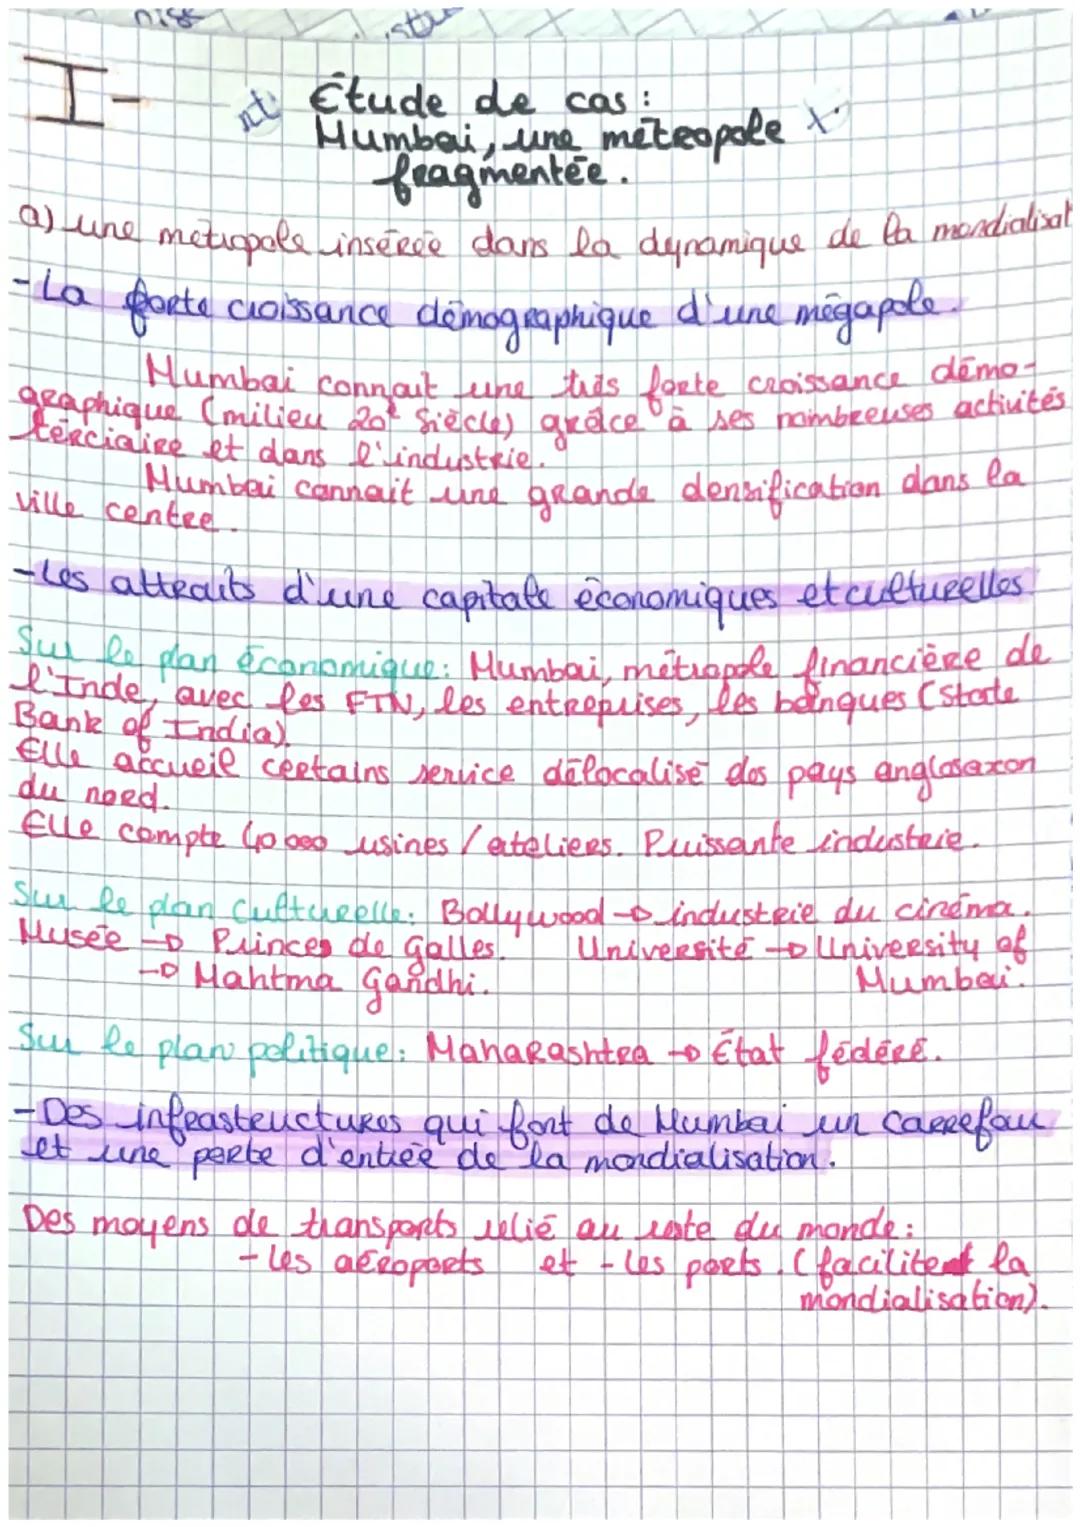 I-
Étude de cas :
Mumbai, une métropole
fragmentée.
a) une métropole insérée dans la dynamique de la mondialisat
-La forte croissance démographique d'une mégapole.
Mumbai connait une très forte croissance démo-
graphique (milieu 20e Siècle) grâce à ses nombreuses activités
terciaire et dans l'industrie.
Mumbai connait une grande densification dans la
ville centre.
-Les attraits d'une capitale économiques et culturelles
Sur le plan économique: Mumbai, métropole financière de
l'Inde, avec les FTN, les entreprises, les banques (State
Bank of India).
Elle accueil certains service délocalisé des pays anglosaxon
du nord.
Elle compte 40 000 usines / ateliers. Puissante industrie.
Sur le plan culturelle: Bollywood → industrie du cinéma.
Musée → Princes de Galles. Université → University of
→ Mahtma Gandhi. Mumbai.
Sur le plan politique: Maharashtra → État fédéré.
-Des infrastructures qui font de Mumbai un carrefou
et une porte d'entrée de la mondialisation.
Des moyens de transports relié au reste du monde:
-les aéroports et -les ports. (facilitent la
mondialisation).